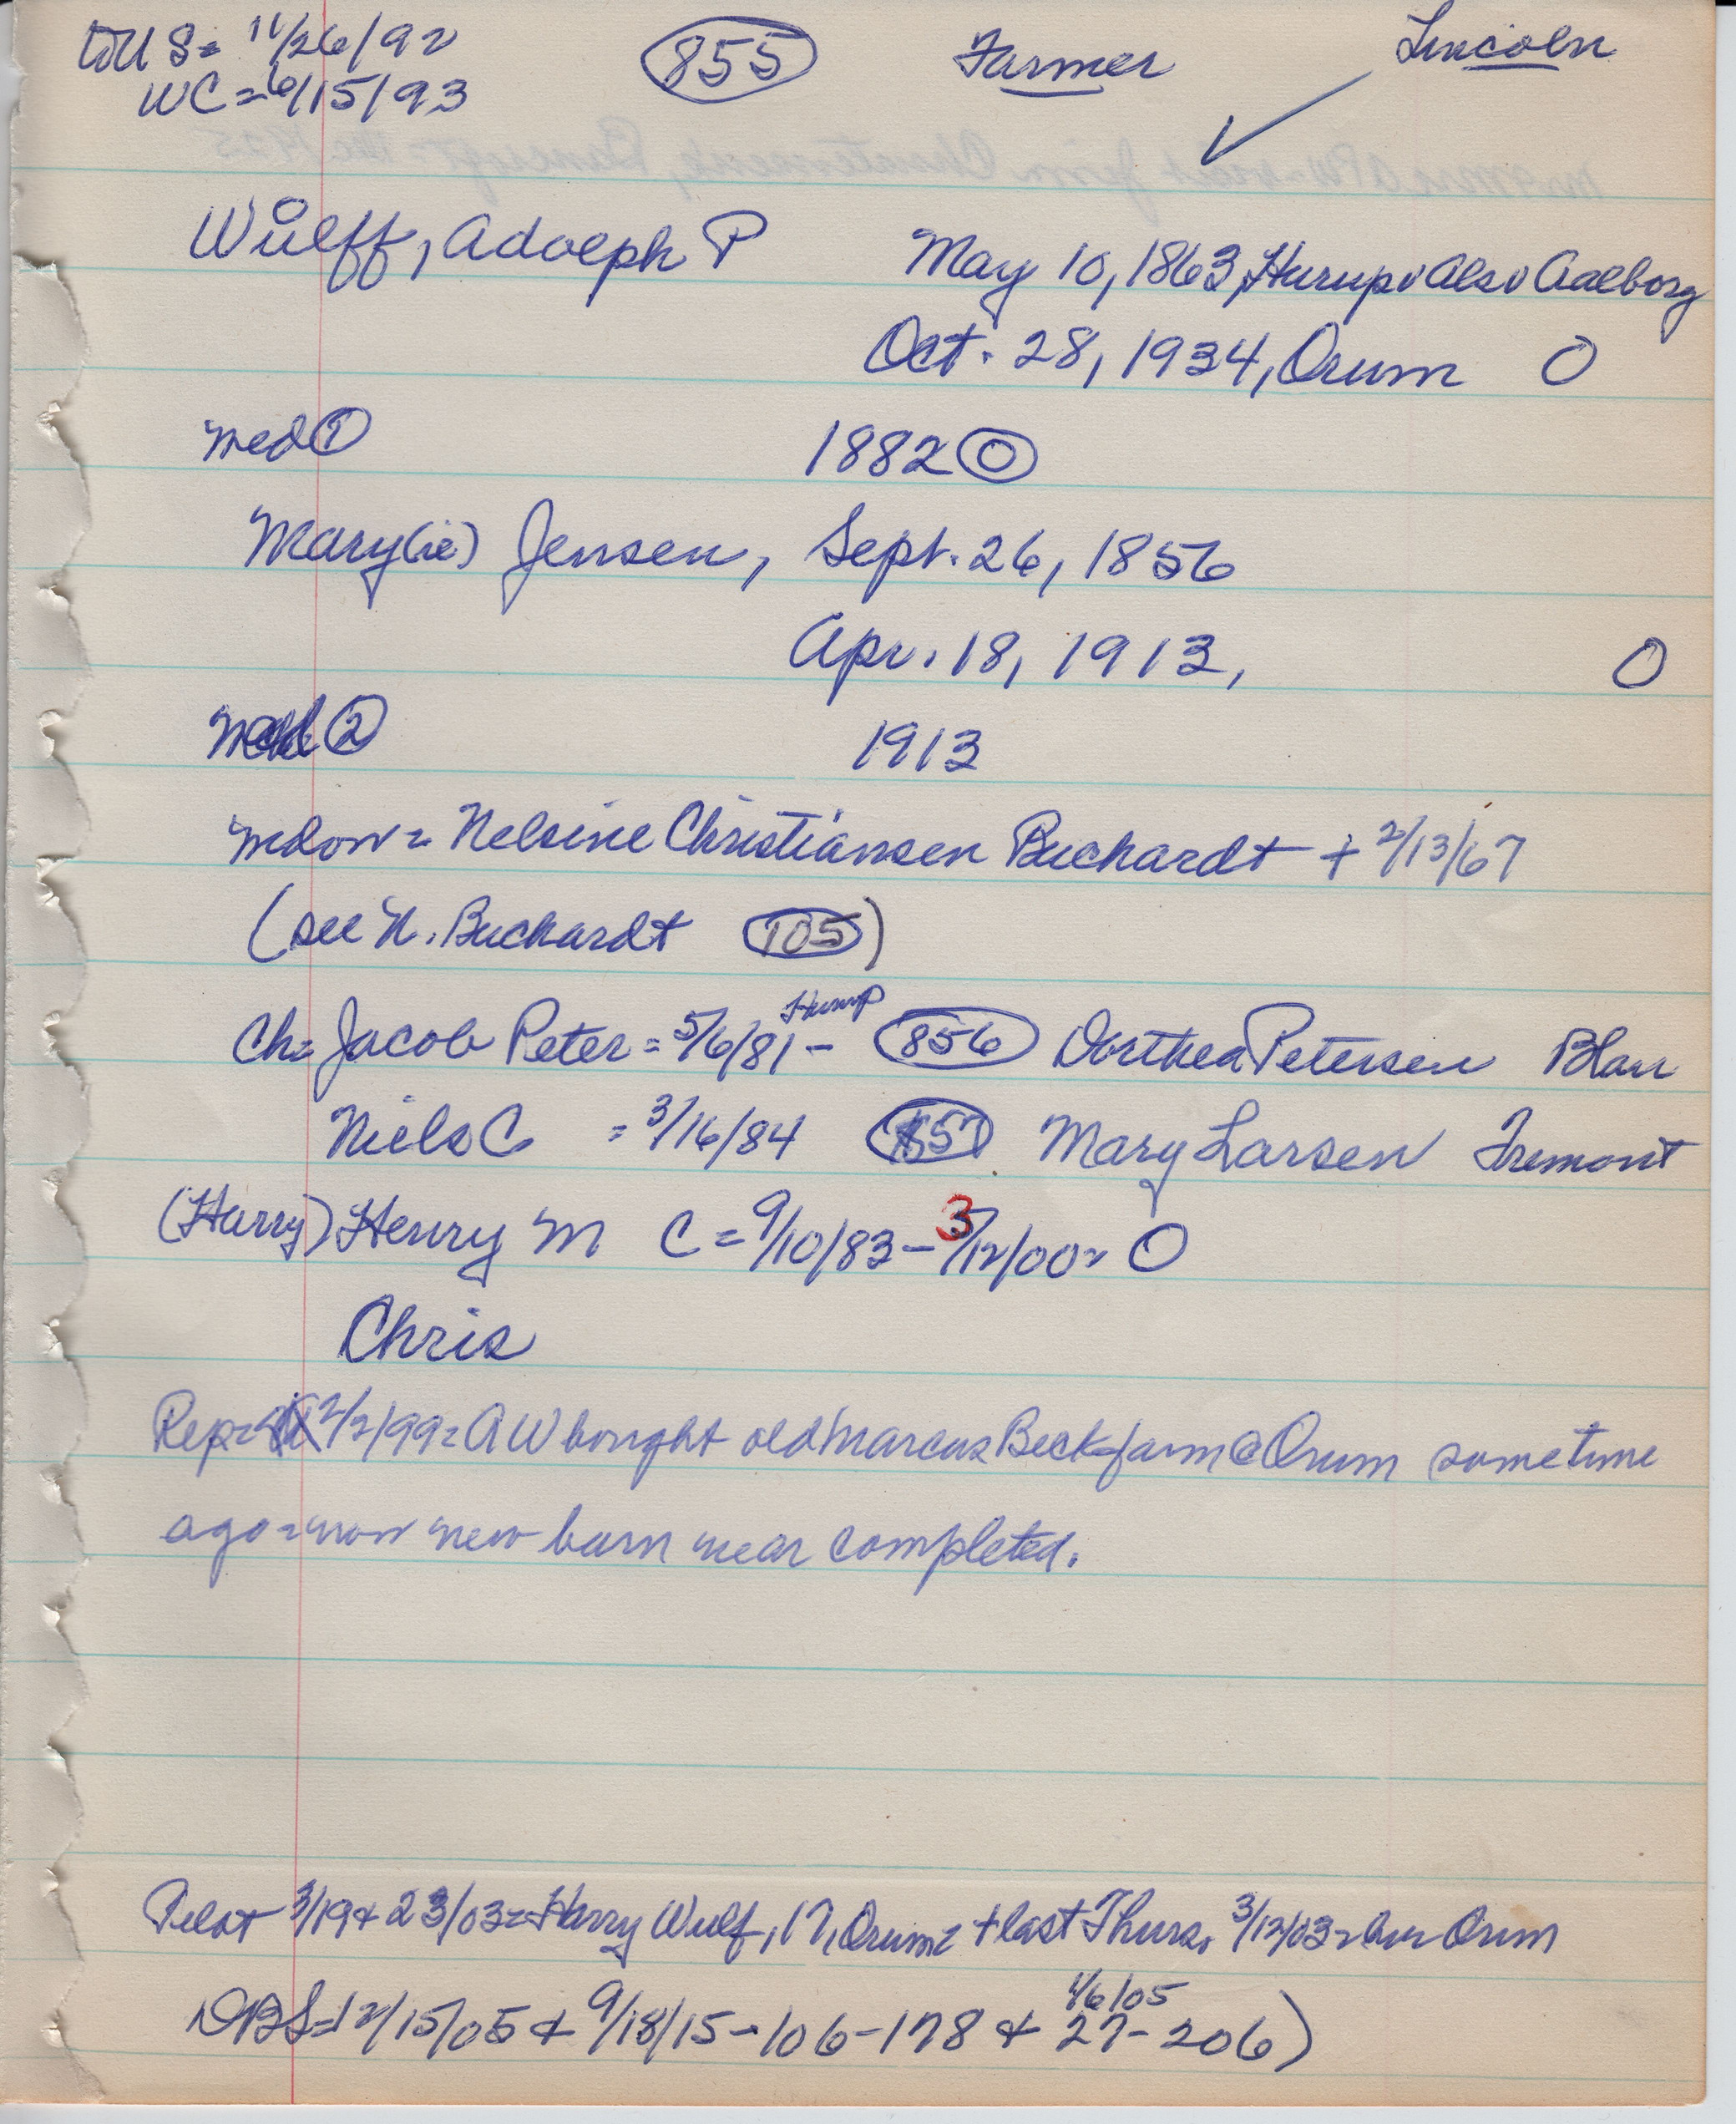 WC = 6/15/93
11/26/92 855 Farmer Lincoln
Wulff, Adolph P May 10, 1863, Hurup also Aalborg
Oct. 28, 1934, Orum O
med ① 1882 O
Mary(ie) Jensen, Sept. 26, 1856
Apr. 18, 1913, O
② 1913
= Nelsine Christiansen Buchardt + 2/13/67
(see N. Buchardt 105)
Hurup
Ch= Jacob Peter = 5/6/81 - 856 Dorthea Petersen Blair
Niels C = 3/16/84 857 Mary Larsen Fremont
(Harry) Henry M C = 9/10/83 - 3/12/00 = O
Chris
Rep= 2/2/99 = AW bought old Marcus Beck farm @ Orum sometime
ago = now new barn near completed.
Pilot 3/19 & 23/03 = Harry Wulf, 17, Orum = + last Thurs. 3/12/03 = Orum
1/6/05
DBS = 12/15/05 & 9/18/15 - 106-178 & 27-206)